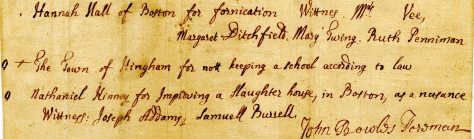 Hannah Hall of Boston for fornication Wittnes Mrs Vee,
Margaret Ditchfield. Mary Ewing. Ruth Penniman
+ The Town of Hingham for not keeping a school according to law
Nathaniel Hinney for Improving a slaughter house, in Boston, as a nusance
Wittness: Joseph Addams, Samuel Burrell.
John Bowles Foreman